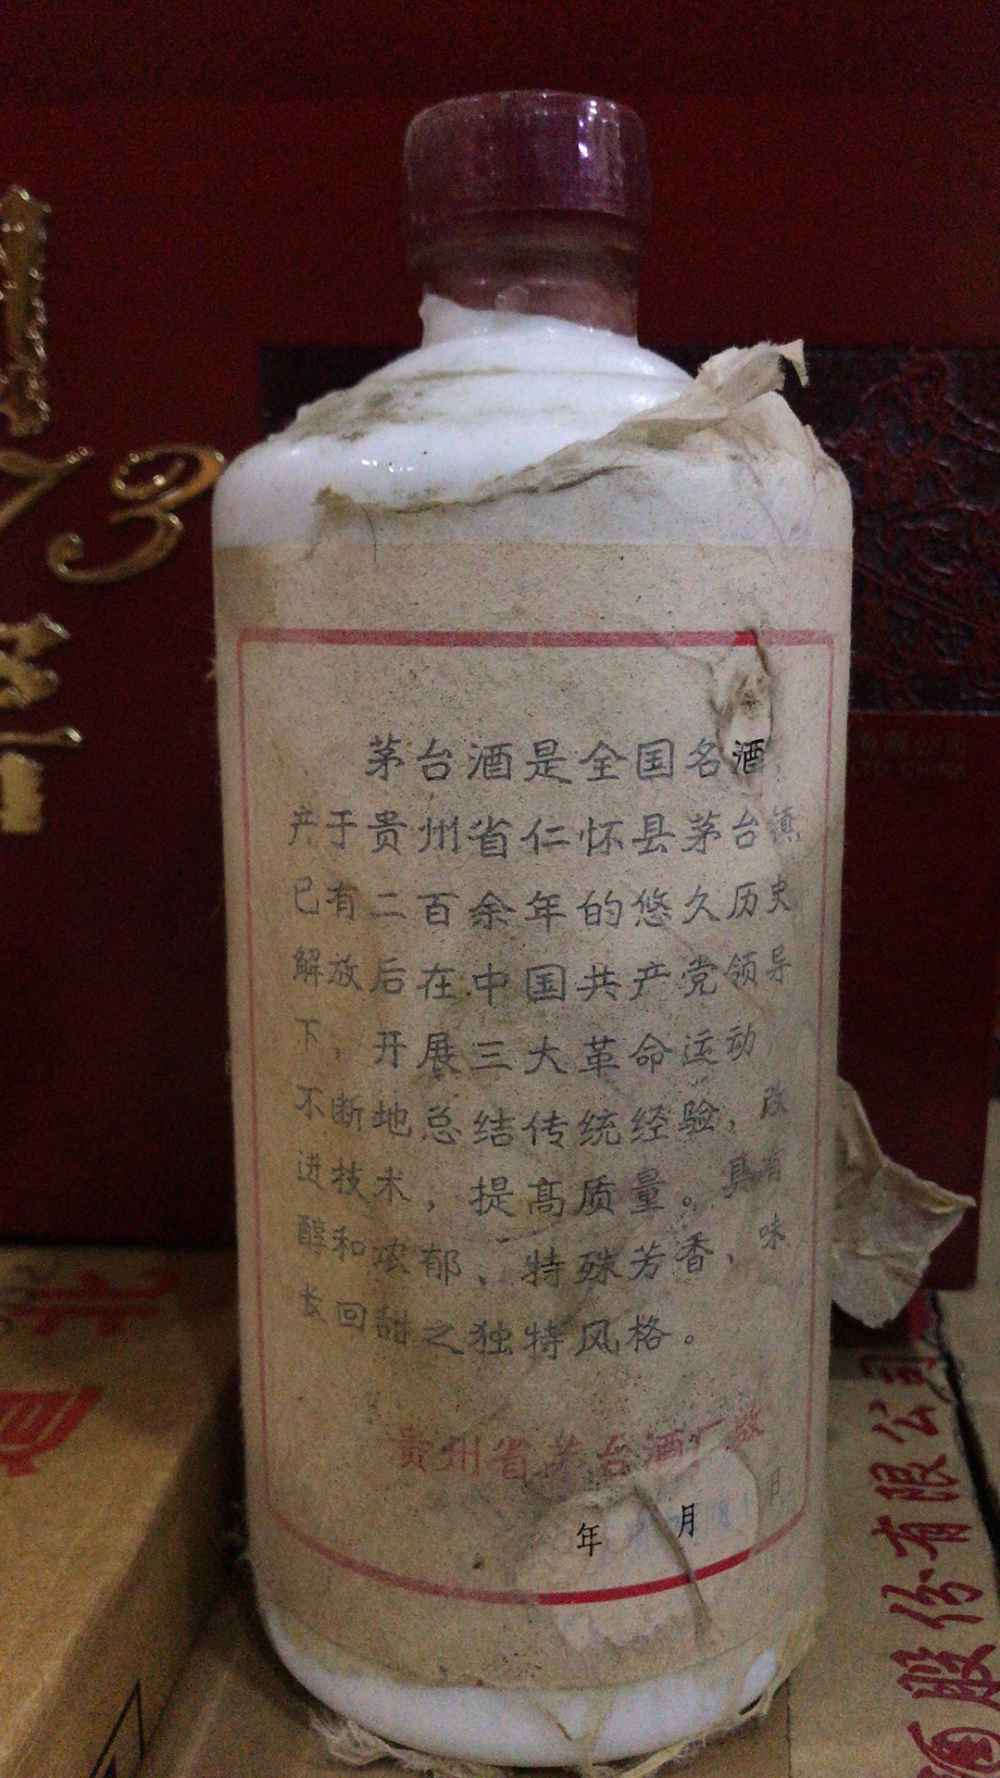 茅台酒是全国名酒
产于贵州省仁怀县茅台镇
已有二百余年的悠久历史
解放后在中国共产党领导
下，开展三大革命运动
不断地总结传统经验，改
进技术，提高质量。具有
醇和浓郁、特殊芳香，味
长回甜之独特风格。
贵州省茅台酒厂启
年 月
73
酒股份有限公司